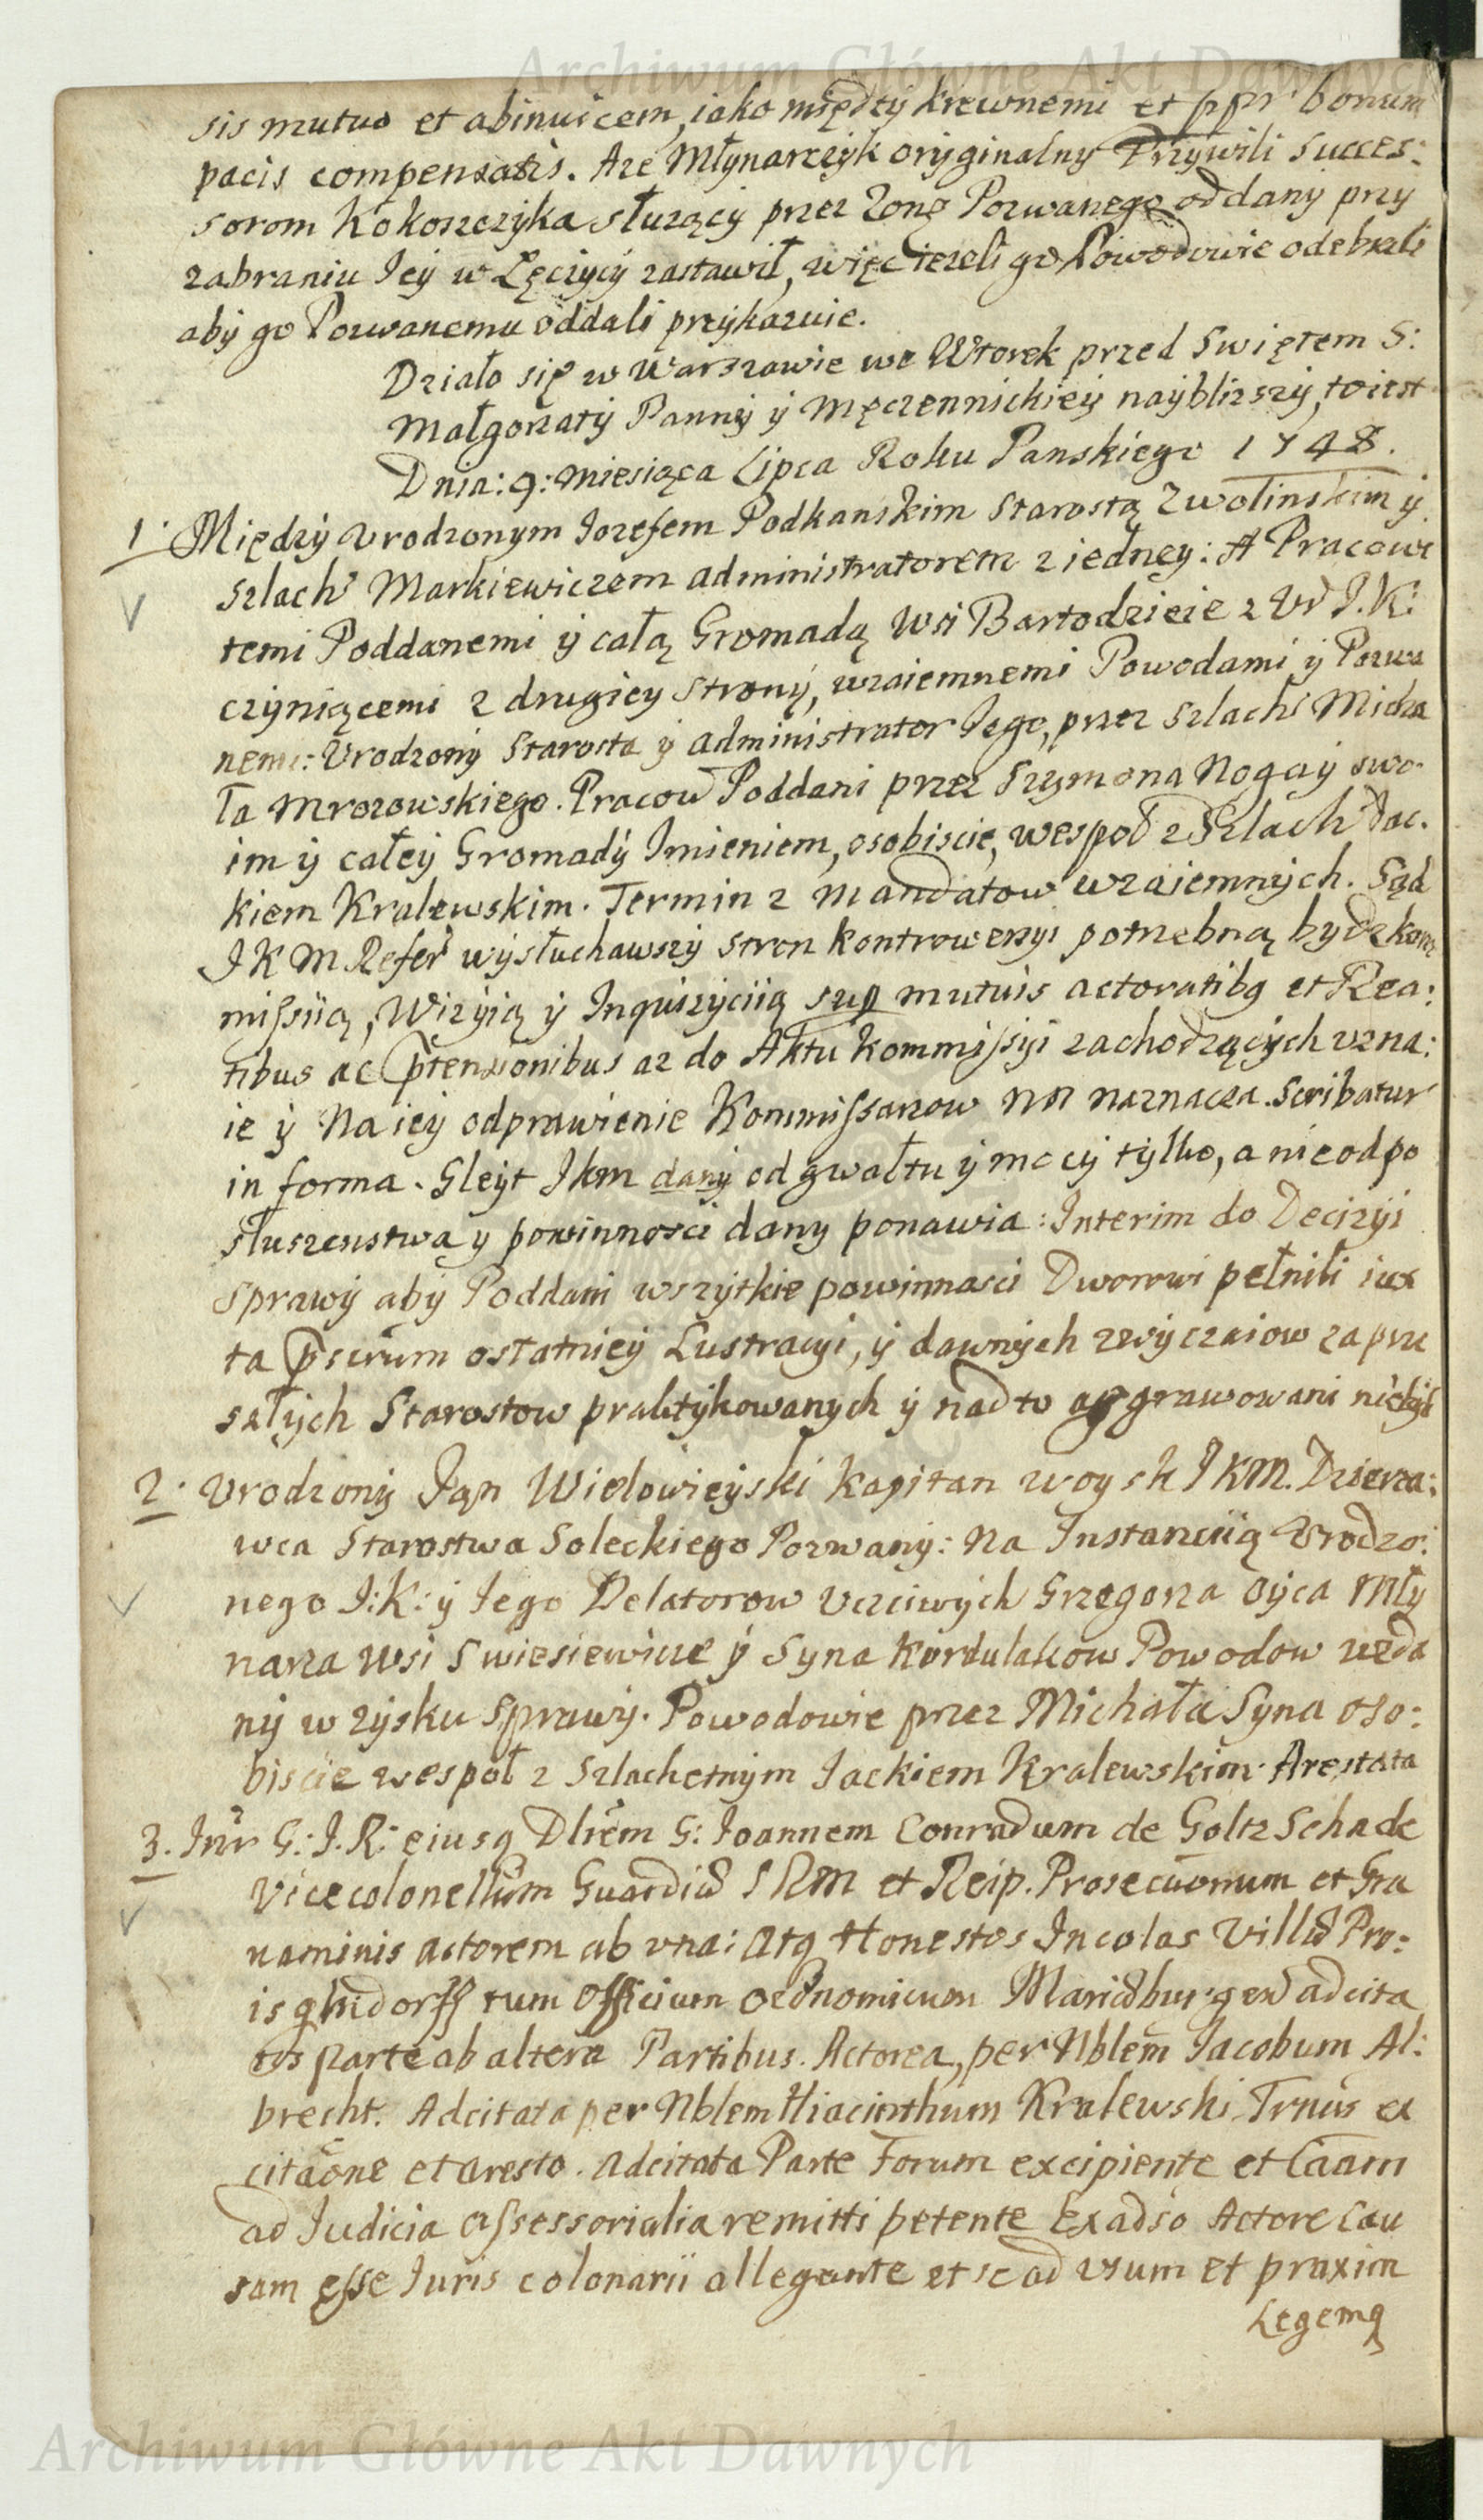 Archiwum Główne Akt Dawnych
sis mutuo et abinuicem, iako między krewnemi et ppr bonum
pacis compensatis. Aże Młynarczÿk orÿginalny Przywili Succes:
sorom Kokoszczÿka służącÿ przez Żonę Pozwanego oddanÿ przy
zabraniu Jeÿ w Łęczÿcÿ zastawił, więc ieżeli go Powodowie odebrali
abÿ go Pozwanemu oddali przÿkazuie.
Działo się w Warszawie we Wtorek przed Swiętem S:
Małgorzatÿ Pannÿ ÿ Męczennickieÿ naÿbliższÿ, to iest
Dnia: 9: Miesiąca Lipca Roku Panskiego 1748.
1. Międzÿ Urodzonym Jozefem Podkanskim Starostą Zwolinskim ÿ
Szlach Markiewiczem Administratorem z iedney: A Pracowi
temi Poddanemi ÿ całą Gromadą Wsi Bartodzieie z Ur J.K:
czÿniącemi z drugiey stronÿ, wzaiemnemi Powodami ÿ Pozwa
nemi: Urodzonÿ Starosta ÿ Administrator Jego, przez Szlach Micha
ła Mrozowskiego. Pracow Poddani przez Szymona Nogaÿ swo
im ÿ całeÿ Gromadÿ Imieniem, osobiscie, wespoł z Szlach Jac.
kiem Kralewskim. Termin z Mandatow wzaiemnÿch. Sąd
JKM Refer wÿsłuchawszÿ stron kontrowersyi potrzebną bydz kom
missiią, Wizÿią ÿ Inquizÿciią sup mutuis actoratibq et Rea:
tibus ac ptensionibus aż do Aktu Kommissÿi zachodzącÿch uzna:
ie ÿ Na ieÿ odprawienie Kommissarzow NN naznacza. Scribatur
in forma. Gleÿt Jkm danÿ od gwałtu ÿ mocÿ tÿlko, a nie od po
słuszenstwa y powinnosci dany ponawia: Interim do Decizÿi
Sprawÿ abÿ Poddani wszÿtkie powinnosci Dworowi pełnili iux
ta pscrum ostatnieÿ Lustracyi, ÿ dawnÿch zwÿczaiow za prze
szłÿch Starostow praktÿkowanych ÿ nadto aggrawowani nie bÿli
2. Urodzonÿ Jan Wielowieÿski Kapitan woysk JKM. Dzierża:
wca Starostwa Soleckiego Pozwanÿ: Na Instanciią Urodzo:
nego J:K: ÿ Jego Delatorow Uczciwÿch Grzegorza Oÿca Młÿ
narza Wsi Swiesiewicze ÿ Syna Kordulakow Powodow zeda
nÿ w zÿsku Sprawÿ. Powodowie przez Michała Syna oso:
biscie wespoł z Szlachetnÿm Jackiem Kralewskim. Arestata
3. Intr G: J.R: eiusq Dltem G: Joannem Conradum de Goltz Schade
Vicecolonellum Guardiæ SRM et Reip. Prosecuonum et Gra
uaminis Actorem ab una: Atq Honestos Incolas Villæ Pro:
tum Officium Oeconomicum Mariæburgen adcita
tos parte ab altera Partibus. Actorea, per Nblem Jacobum Al:
brecht. Adcitata per Nblem Hiacinthum Kralewski, Trnus ex
citaone et aresto. Adcitata Parte Forum excipiente et Caam
ad Judicia Assessorialia remitti petente Ex adso Actore Cau
sam esse Juris colonarii allegante et se ad usum et praxim
Legemq
Archiwum Główne Akt Dawnych